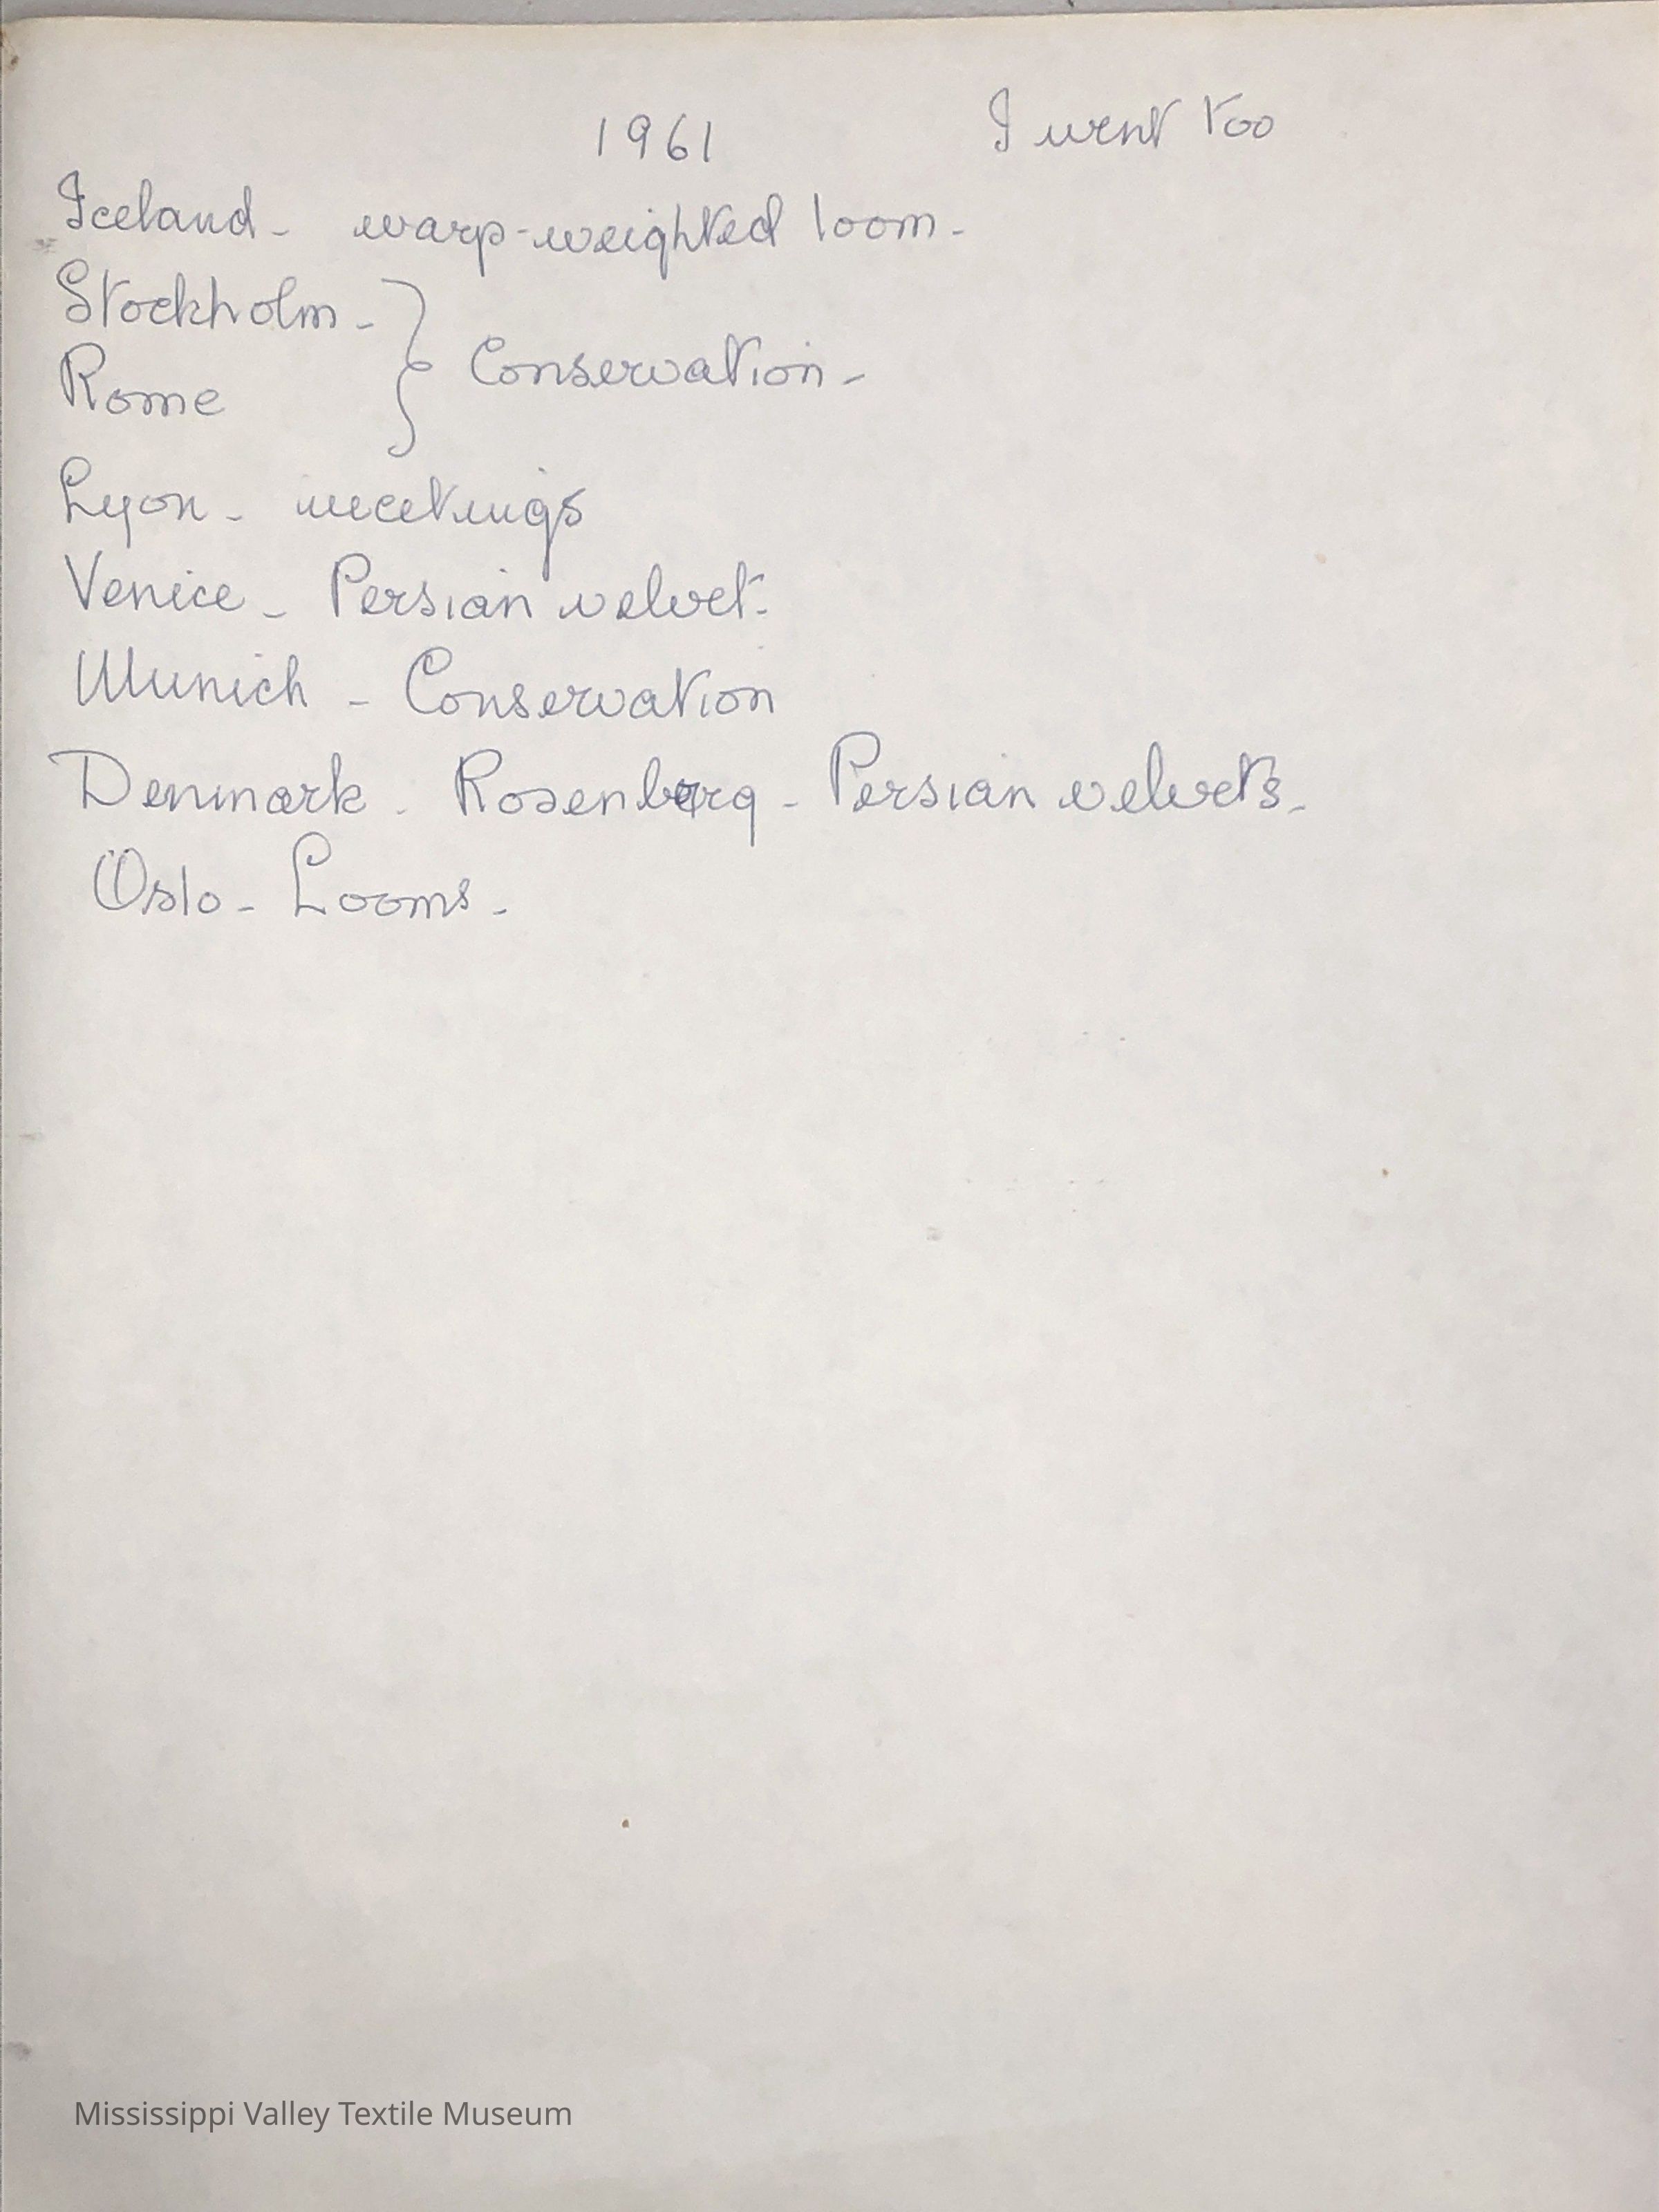 1961 I went too
Iceland - warp-weighted loom -
Stockholm -
Rome } Conservation -
Lyon - meetings
Venice - Persian velvet -
Munich - Conservation
Denmark - Rosenborg - Persian velvets -
Oslo - Looms -
Mississippi Valley Textile Museum